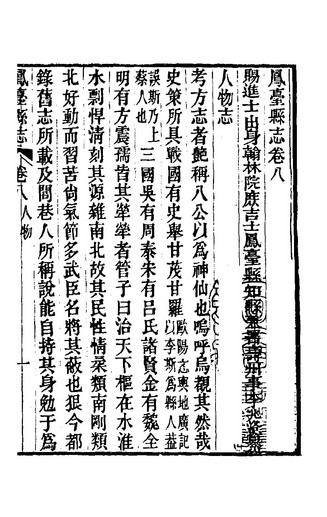 鳳臺縣志卷八
賜進士出身翰林院庶吉士鳳臺縣知縣兼署壽州事李兆洛纂
人物志
考方志者艶稱八公以爲神仙也嗚呼烏覩其然哉
史策所具戰國有史舉甘茂甘羅歐陽忞輿地廣記以李斯爲縣人蓋
誤斯乃上蔡人也三國吳有周泰宋有呂氏諸賢金有魏全
明有方震孺皆其犖犖者管子曰治天下樞在水淮
水剽悍清刻其源雜南北故其民性情柔類南剛類
北好動而習苦尙氣節多武臣名將其敝也狠今都
錄舊志所載及閭巷人所稱說能自持其身勉于爲
鳳臺縣志
卷八人物
一